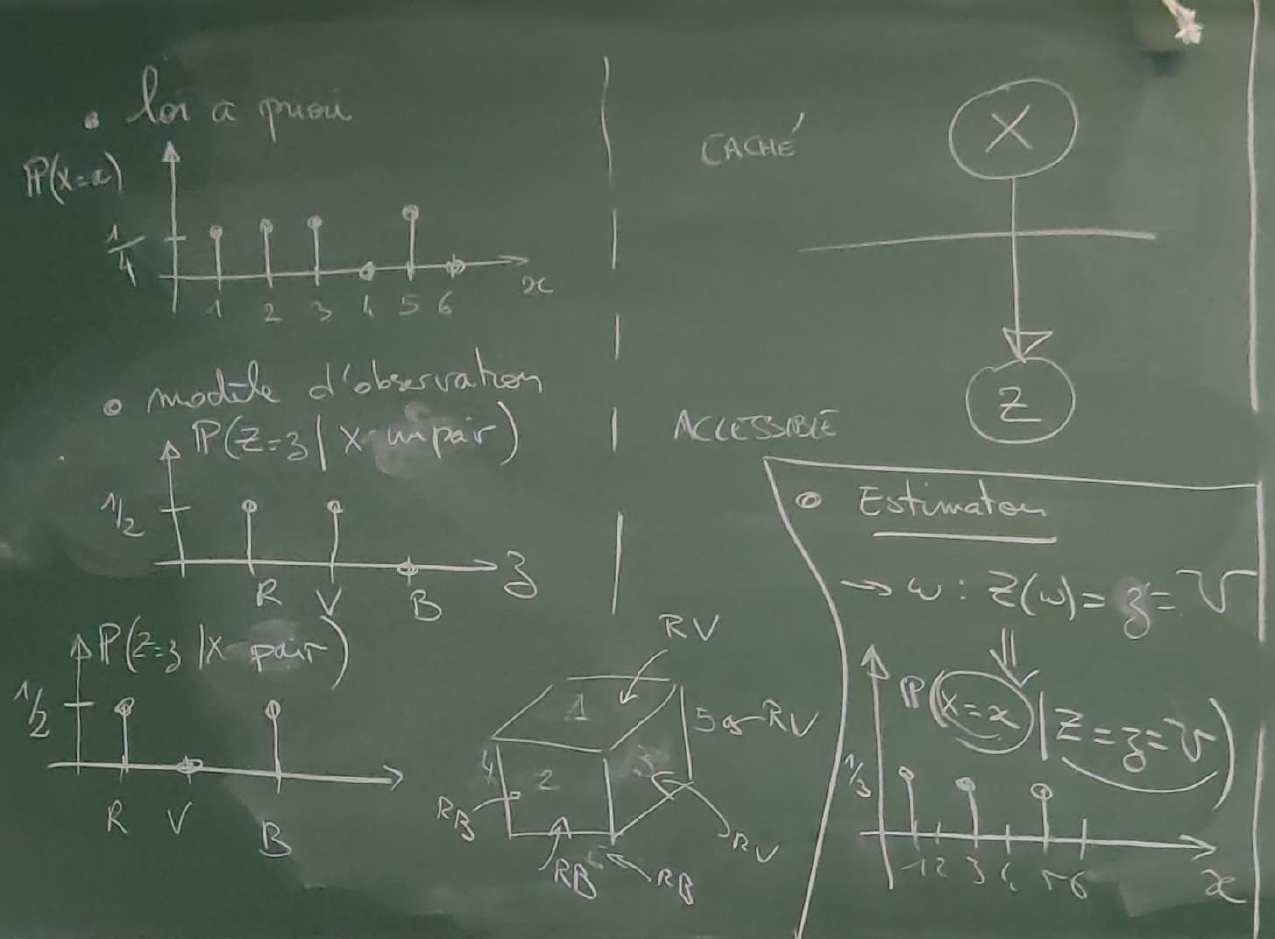 • loi a priori
P(X=x)
1/4
1 2 3 4 5 6 x
• modèle d'observation
P(Z=z | X impair)
1/2
R V B z
P(Z=z | X pair)
1/2
R V B
CACHÉ
X
ACCESSIBLE
Z
RV
1
5 RV
4 2 3
RB
RB
RB
RV
• Estimation
→ ω : Z(ω) = z = V
⇓
P(X=x | Z=z=V)
1/3
1 2 3 4 5 6 x